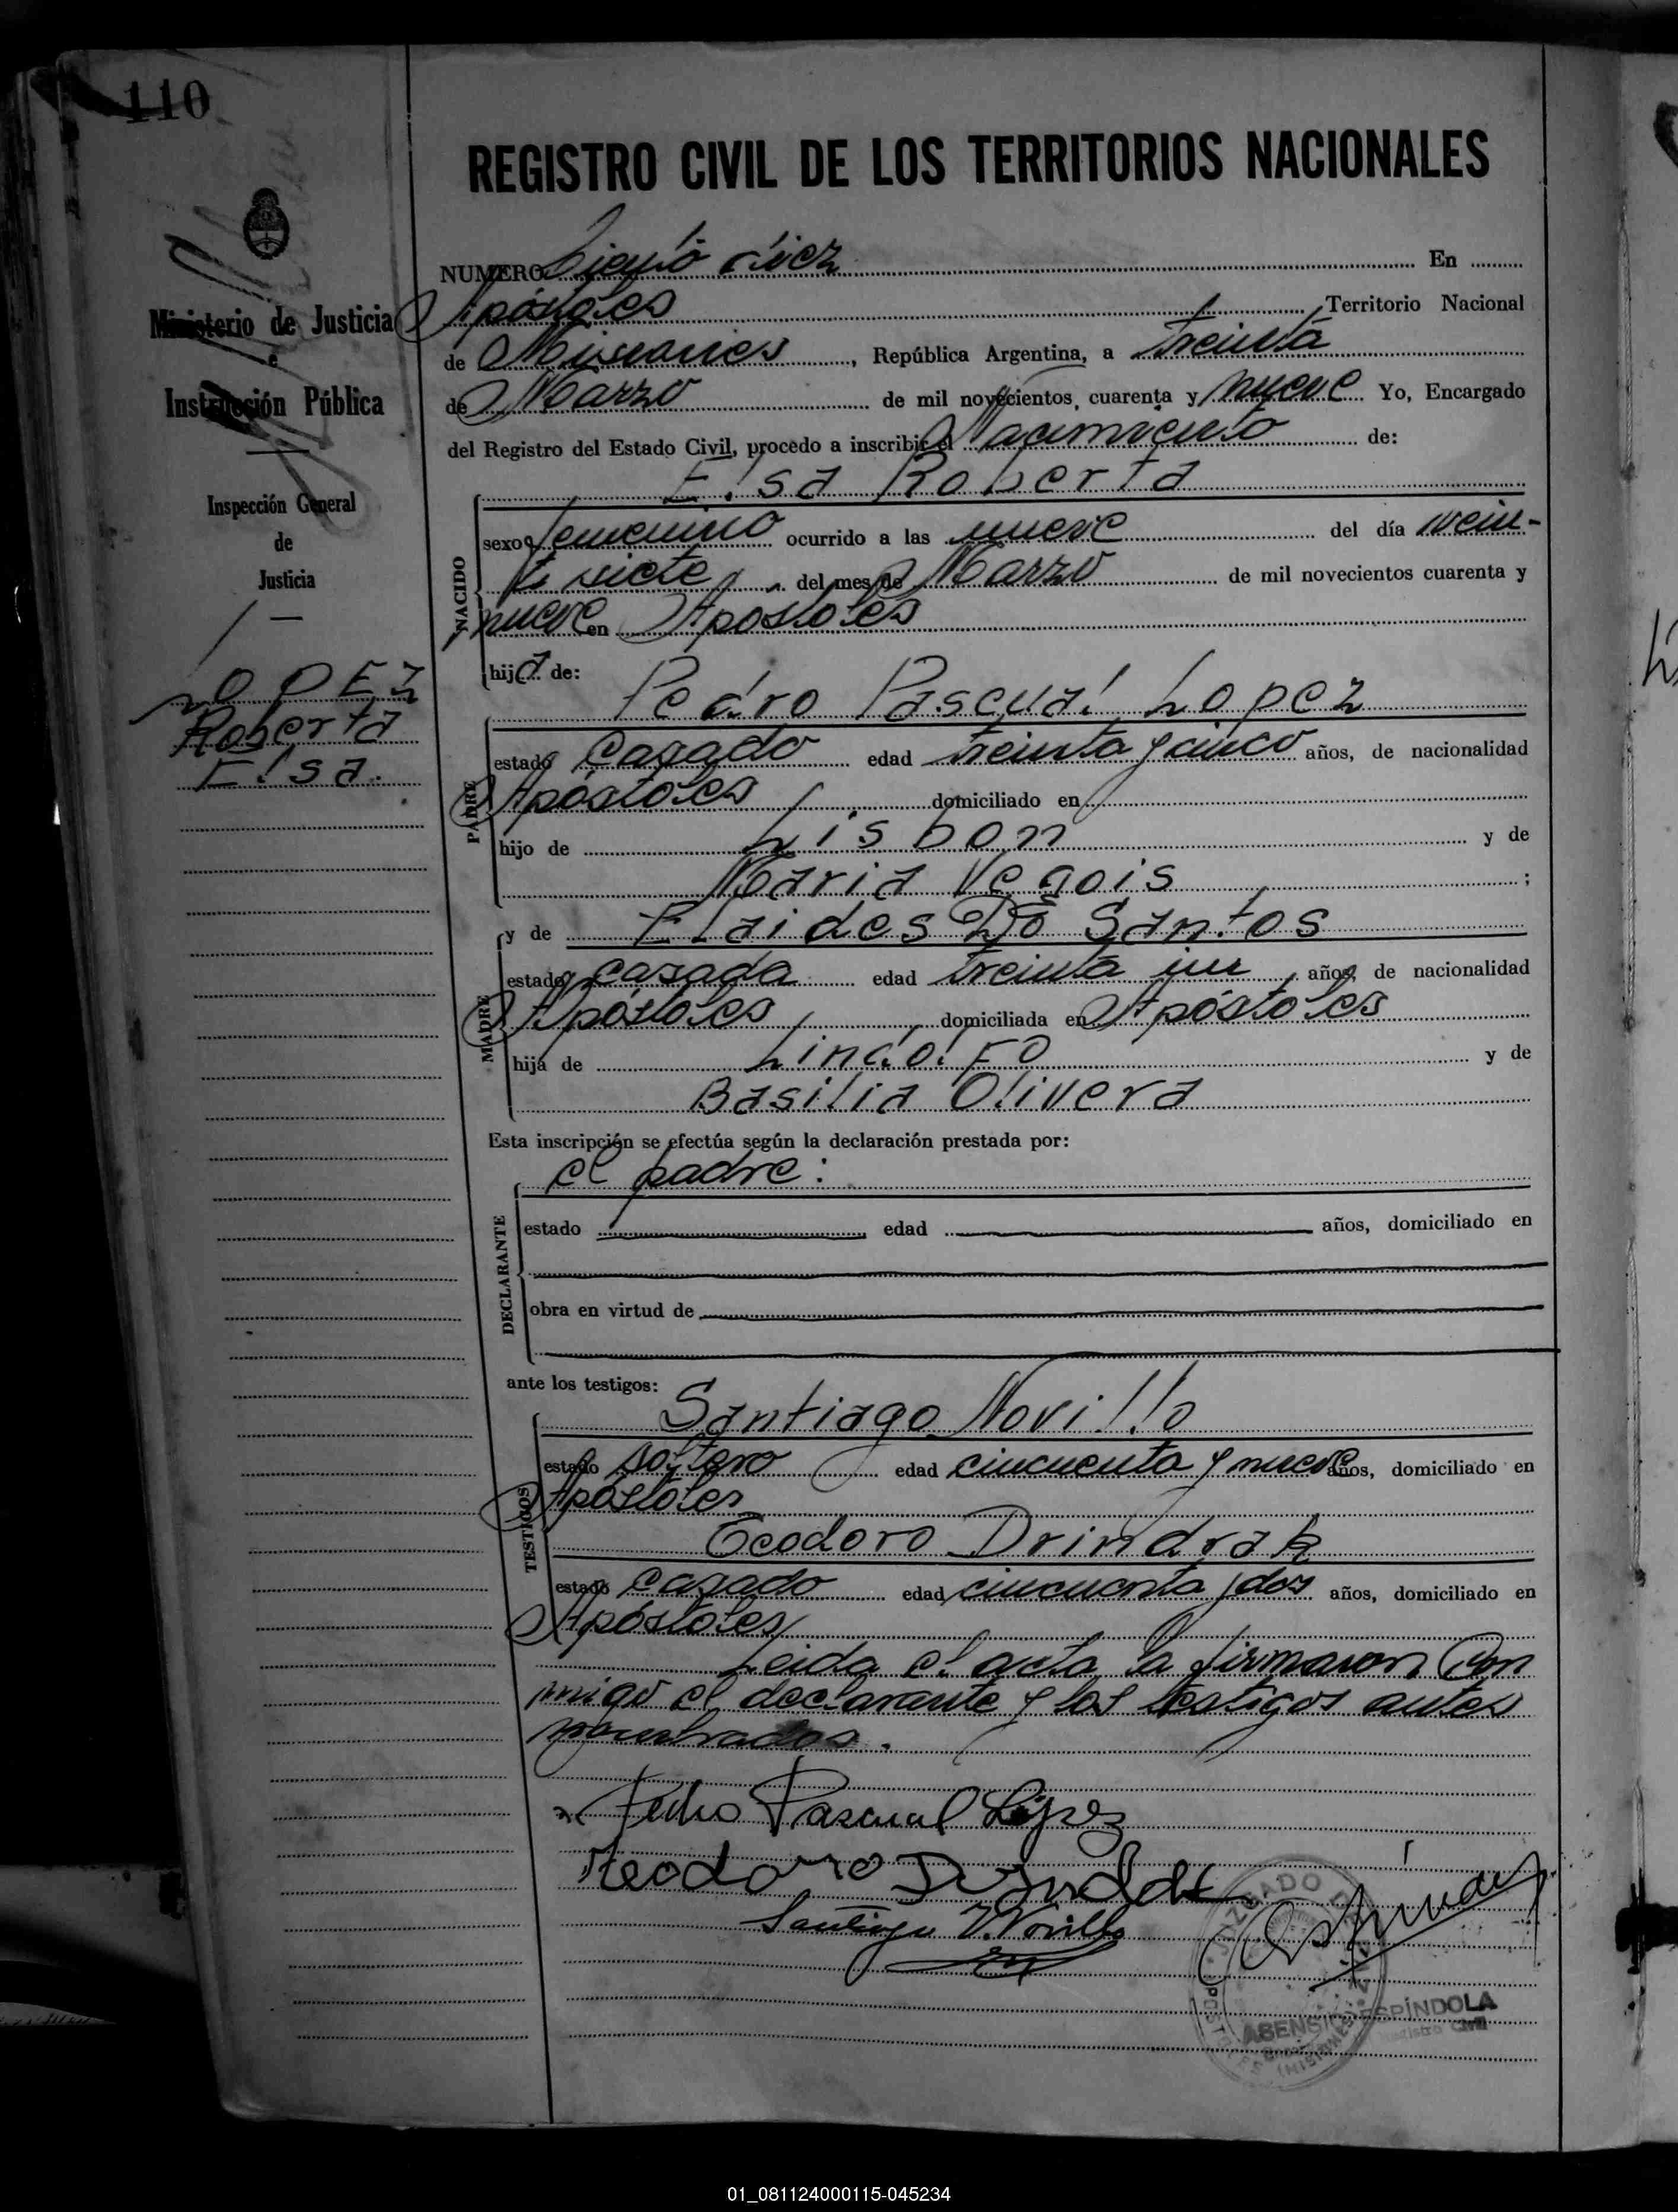 110
REGISTRO CIVIL DE LOS TERRITORIOS NACIONALES
NUMERO Ciento diez En
Apóstoles Territorio Nacional
de Misiones, República Argentina, a treinta
de Marzo de mil novecientos cuarenta y nueve Yo, Encargado
del Registro del Estado Civil, procedo a inscribir el Nacimiento de:
Elsa Roberta
Ministerio de Justicia
e
Instrucción Pública
Inspección General
de
Justicia
LOPEZ
Roberta
Elsa.
NACIDO
sexo femenino ocurrido a las nueve del día vein-
te siete del mes de Marzo de mil novecientos cuarenta y
nueve en Apóstoles
hija de:
Pedro Pascual Lopez
PADRE
estado casado edad treinta y cinco años, de nacionalidad
Apóstoles domiciliado en
hijo de Lisbon y de
Maria ;
y de Elaides Do Santos
MADRE
estado casada edad treinta un años, de nacionalidad
Apóstoles domiciliada en Apóstoles
hija de Lindolfo y de
Basilia Olivera
Esta inscripción se efectúa según la declaración prestada por:
el padre:
DECLARANTE
estado edad años, domiciliado en
obra en virtud de
ante los testigos:
Santiago Novillo
TESTIGOS
estado soltero edad cincuenta y nueve años, domiciliado en
Apóstoles
Teodoro Drindrak
estado casado edad cincuenta y dos años, domiciliado en
Apóstoles
Leida el acta, la firmaron con
migo el declarante y los testigos antes
nombrados.
Pedro Pascual López
Teodoro
Santiago V. Novillo
JUZGADO DE
APOSTOLES (MISIONES)
ASENSIO ESPÍNDOLA
Registro Civil
01_081124000115-045234